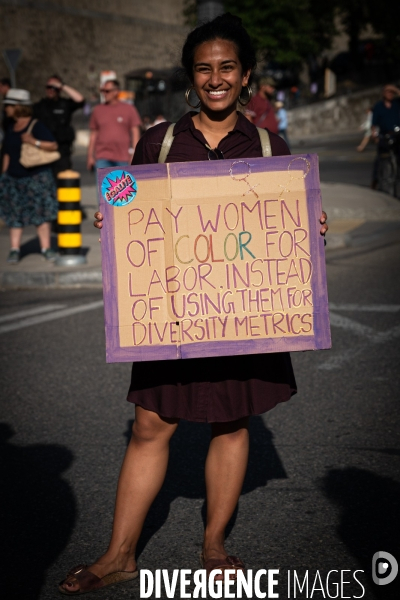 PAY WOMEN
OF COLOR FOR
LABOR, INSTEAD
OF USING THEM FOR
DIVERSITY METRICS
DIVERGENCE IMAGES